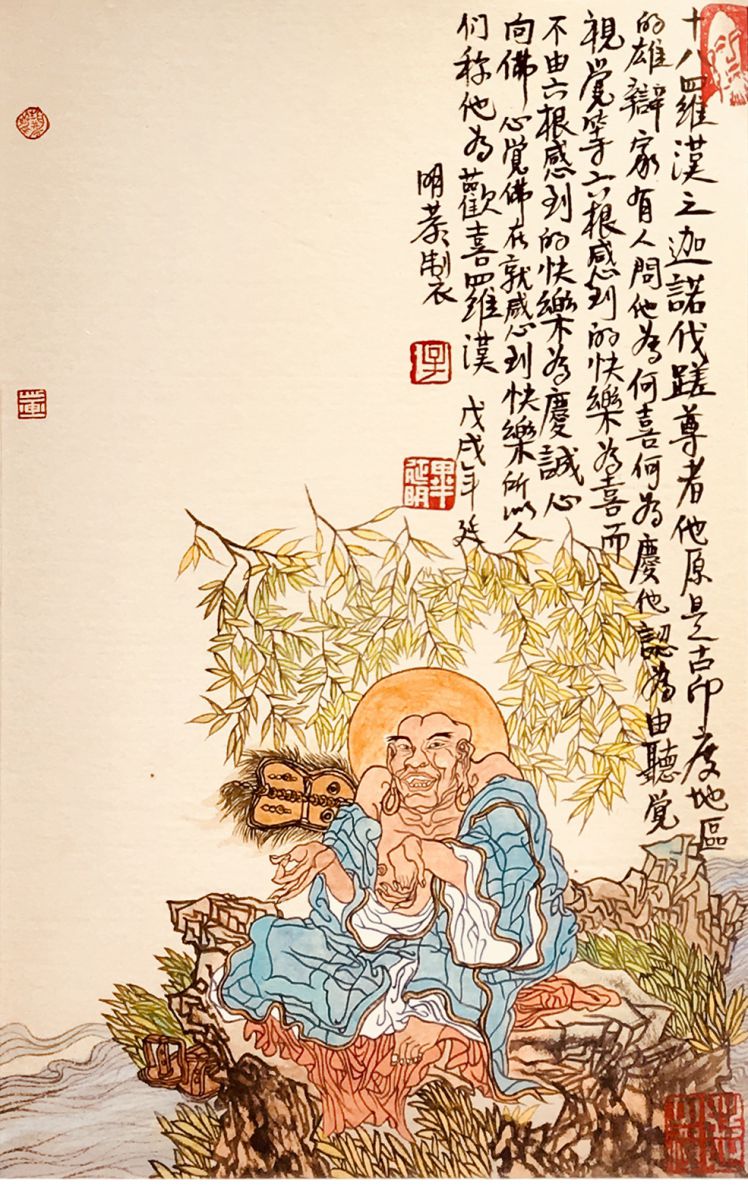 十八羅漢之迦諾伐蹉尊者他原是古印度地區
的雄辯家有人問他為何喜何為慶他認為由聽覺
視覺等六根感到的快樂為喜而
不由六根感到的快樂為慶誠心
向佛心覺佛在就感到快樂所以人
们称他為歡喜羅漢 戊戌年延
明恭製